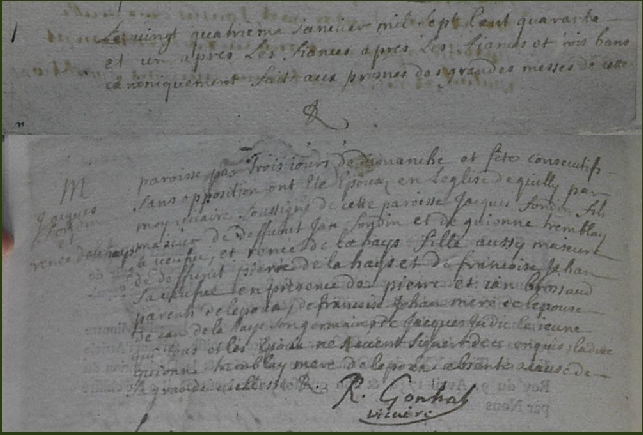 Le vingt quatrieme Janvier mil sept Cent quarante
et un apres Les fiances apres Les fiances et trois bans
canoniquement fait aux prosnes des grandes messes de cette
R
M
Jacques
Sordin
et
renee de la hays
paroisse par Trois iours de dimanche et fete consecutifs
sans opposition ont été Epouz en Leglise de quilly par
moy vicaire soussigné de cette paroisse Jacques fils
majeur de deffunt Jan et de guionne tremblay
sa veufve, et renee de la hays fille aussy majeure
de deffunt pierre de la hays et de francoise Jehan
sa veufve en presence de pierre et ian brossaud
parens de lepoux, de francoise Jehan mere de lepouse
de ian de la hays son germain, de Jacques le jeune
qui tous et les Epoux ne scavent signer de ce enquis, ladite
guionne tremblay mere de lepoux absente a cause de
sa grande viellesse R.
R. Gonhal
vicaire